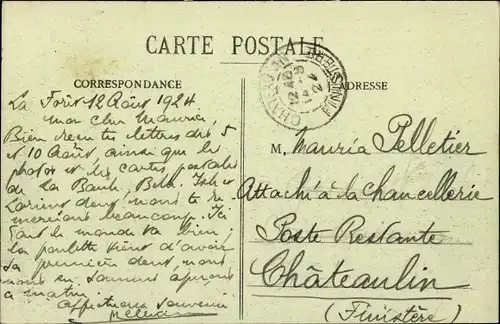 CARTE POSTALE
CORRESPONDANCE
ADRESSE
La Forêt 12 Août 1924
mon cher Maurice,
Bien reçu tes lettres des 5
et 10 Août, ainsi que les
photos et les cartes postales
de La Baule, Batz
Lorient dont nous te re-
mercions beaucoup. Ici
tout le monde va bien;
la poulette vient d'avoir
sa première dent, nous
nous en sommes aperçus
ce matin
affectueux souvenir
M. Maurice Pelletier
Attaché à la Chancellerie
Poste Restante
Châteaulin
(Finistère)
FINISTERE